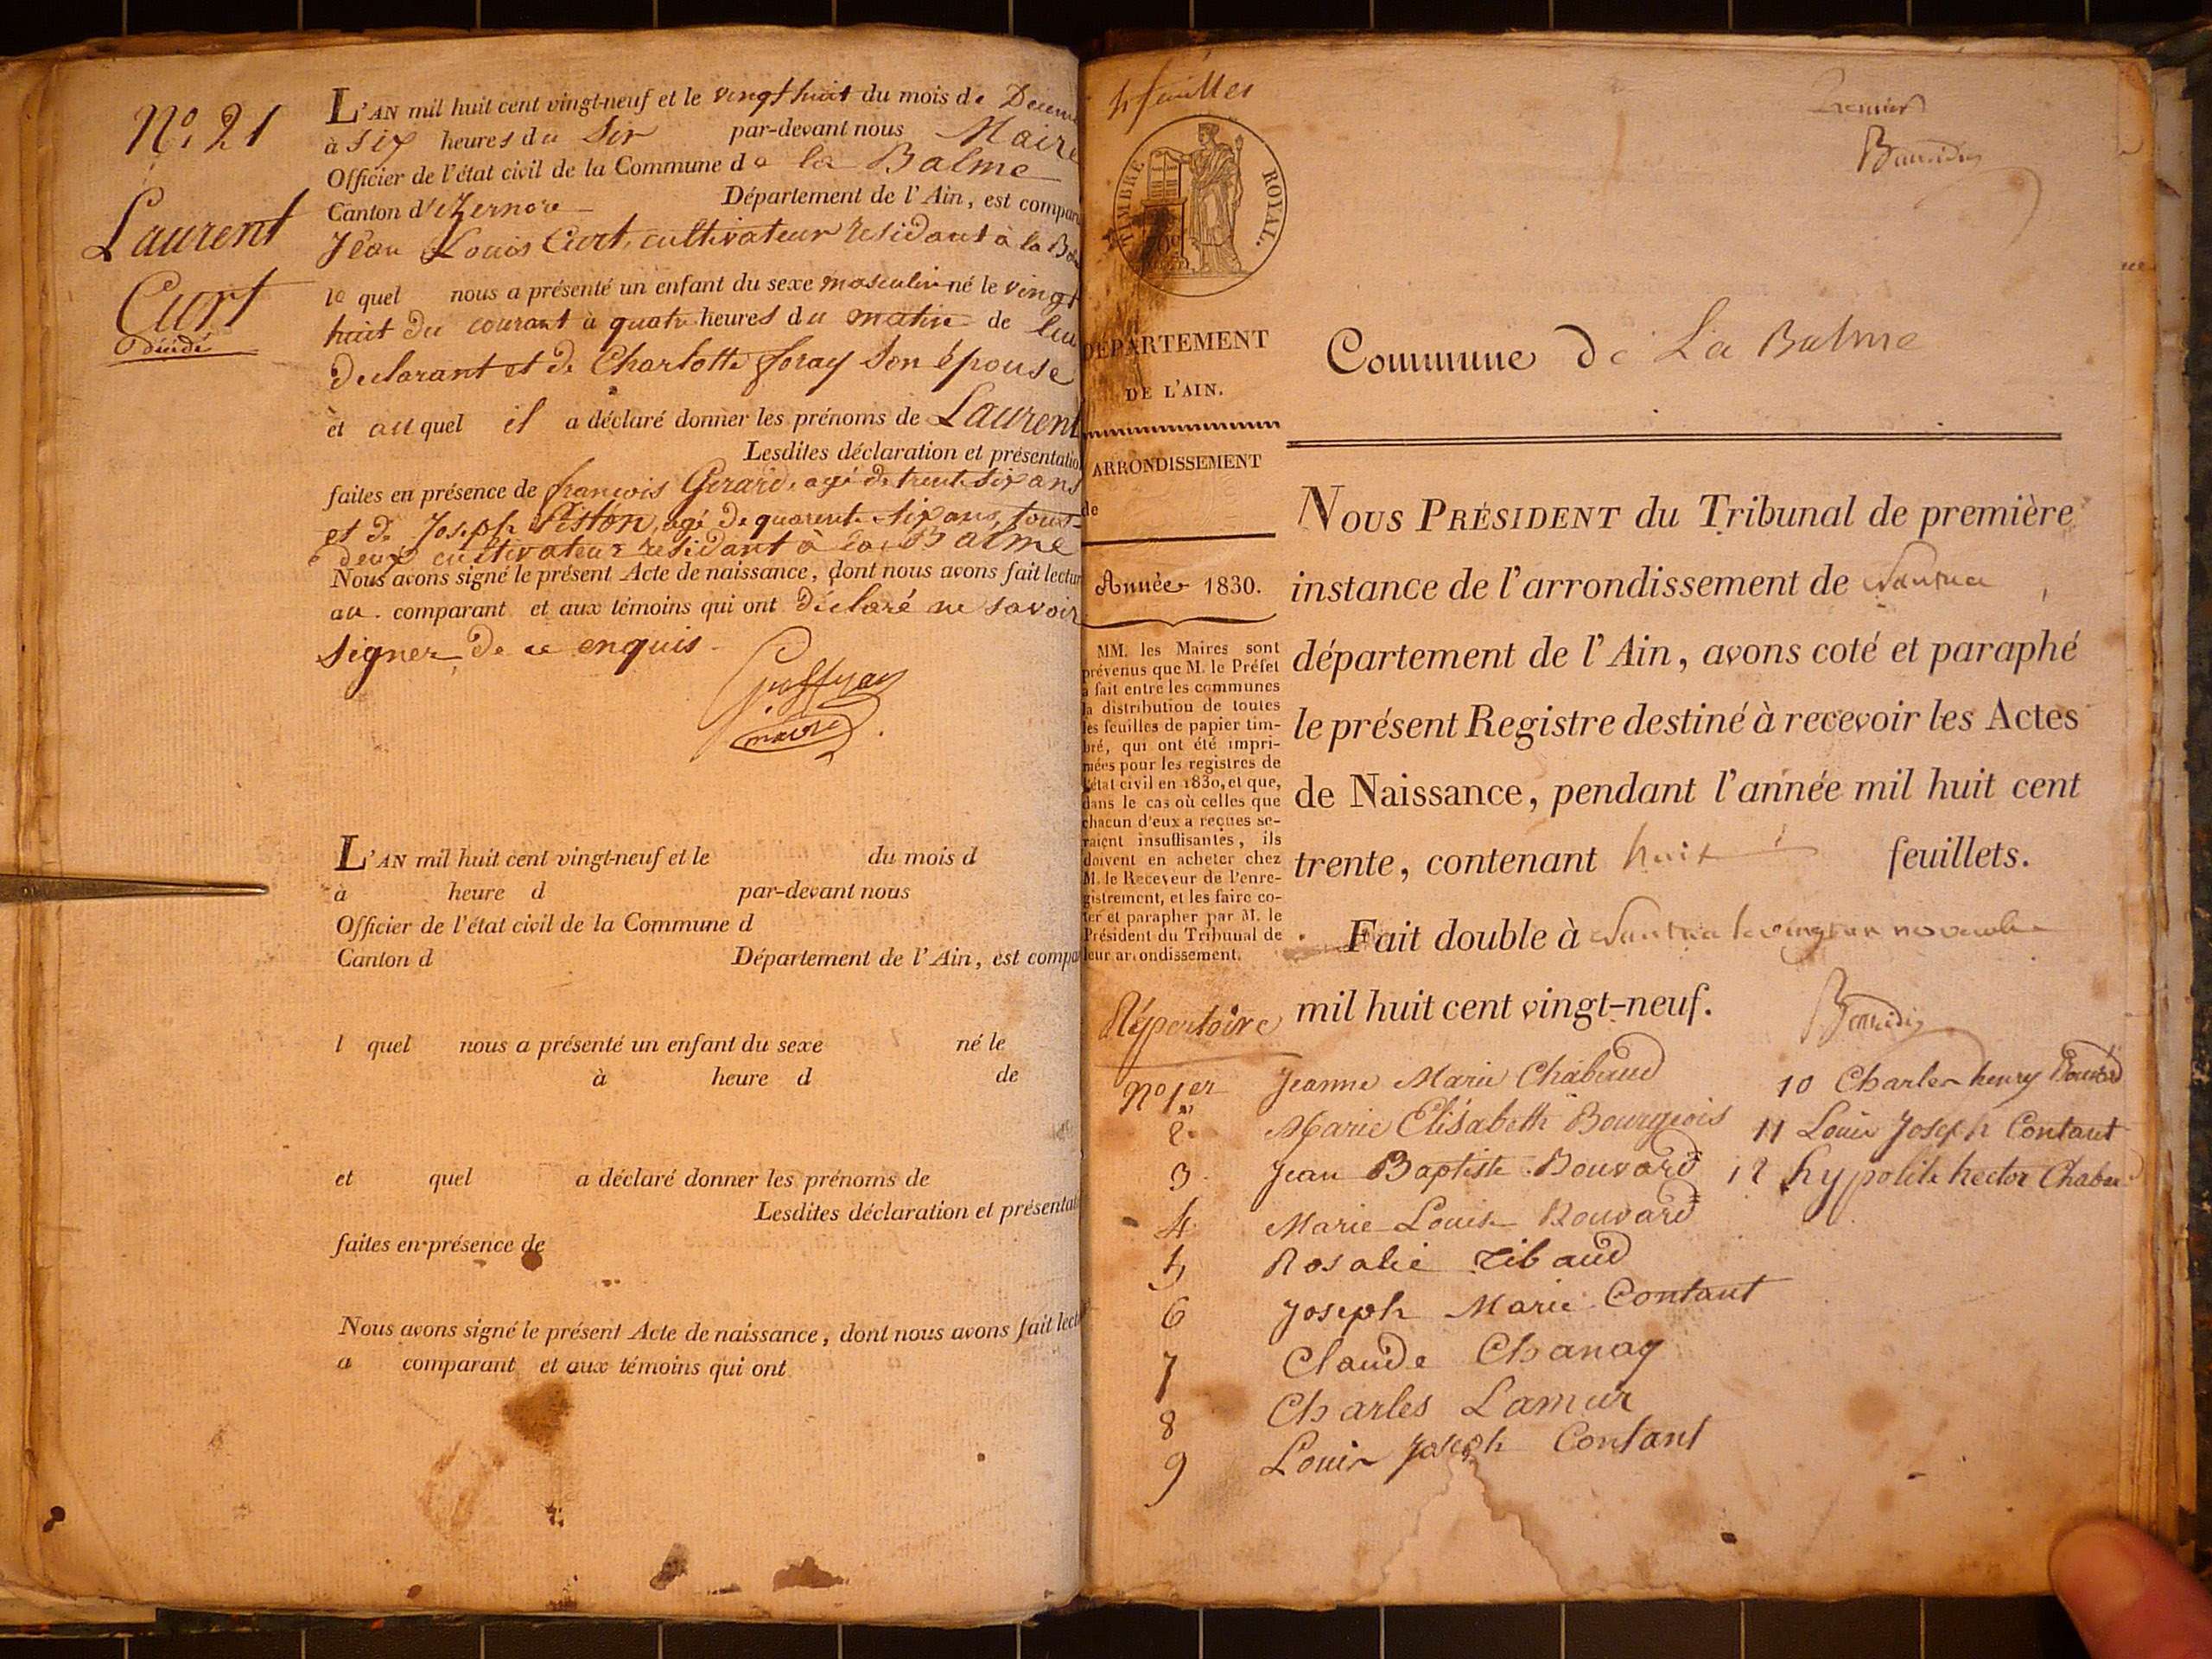 No. 21
Laurent
Curt
décédé
L'AN mil huit cent vingt-neuf et le vingt huit du mois de Decem
à six heures du soir par-devant nous Maire
Officier de l'état civil de la Commune de la Balme
Canton d'izernore Département de l'Ain, est compar
Jean Louis Curt, cultivateur residant à la Ba
le quel nous a présenté un enfant du sexe masculin né le vingt
huit du courant à quatre heures du matin de lui
declarant et de Charlotte foray son épouse
et au quel il a déclaré donner les prénoms de Laurent
Lesdites déclaration et présentatio
faites en présence de françois Gerard, agé de trente six ans
et de Joseph Piston, agé de quarente six ans, tous
deux cultivateur residant à la Balme
Nous avons signé le présent Acte de naissance, dont nous avons fait lectur
au comparant et aux témoins qui ont déclaré ne savoir
signer de ce enquis
maire
L'AN mil huit cent vingt-neuf et le du mois d
à heure d par-devant nous
Officier de l'état civil de la Commune d
Canton d Département de l'Ain, est compa
l quel nous a présenté un enfant du sexe né le
à heure d de
et quel a déclaré donner les prénoms de
Lesdites déclaration et présentat
faites en présence de
Nous avons signé le présent Acte de naissance, dont nous avons fait lect
a comparant et aux témoins qui ont
feuilles
Premier
TIMBRE ROYAL.
DÉPARTEMENT
DE L'AIN.
ARRONDISSEMENT
de
Année 1830.
MM. les Maires sont
prévenus que M. le Préfet
a fait entre les communes
la distribution de toutes
les feuilles de papier tim-
bré, qui ont été impri-
mées pour les registres de
l'état civil en 1830, et que,
dans le cas où celles que
chacun d'eux a reçues se-
raient insuffisantes, ils
doivent en acheter chez
M. le Receveur de l'enre-
gistrement, et les faire co-
ter et parapher par M. le
Président du Tribunal de
leur arrondissement.
Commune de La Balme
NOUS PRÉSIDENT du Tribunal de première
instance de l'arrondissement de Nantua,
département de l'Ain, avons coté et paraphé
le présent Registre destiné à recevoir les Actes
de Naissance, pendant l'année mil huit cent
trente, contenant huit feuillets.
Fait double à Nantua le vingt un novembre
mil huit cent vingt-neuf.
Répertoire
No 1er Jeanne Marie Chabaud
2. Marie Elisabeth Bourgeois
3. Jean Baptiste Bouvard
4. Marie Louise Bouvard
5 Rosalie Tibaud
6 Joseph Marie Contant
7 Claude Chanay
8 Charles Lamur
9 Louis Joseph Contant
10 Charles henry Bouvard
11 Louis Joseph Contant
12 hypolite hector Chabau